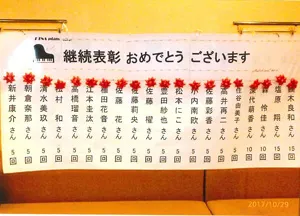 継続表彰 おめでとう ございます
良和さん 15回
塩原 翔さん 15回
怜佳さん 10回
代桃香さん 10回
佳谷由美子さん 5回
高井再二さん 5回
佐藤彩香さん 5回
内南欧さん 5回
松本にこさん 5回
豊田紗也さん 5回
佐藤 曜さん 5回
佐藤莉央さん 5回
佐藤 花さん 5回
棚田花音さん 5回
江本圭汰さん 5回
高橋瑠音さん 5回
松村 和さん 5回
清水美玖さん 5回
朝倉奈那さん 5回
新井康介さん 5回
2017/10/29